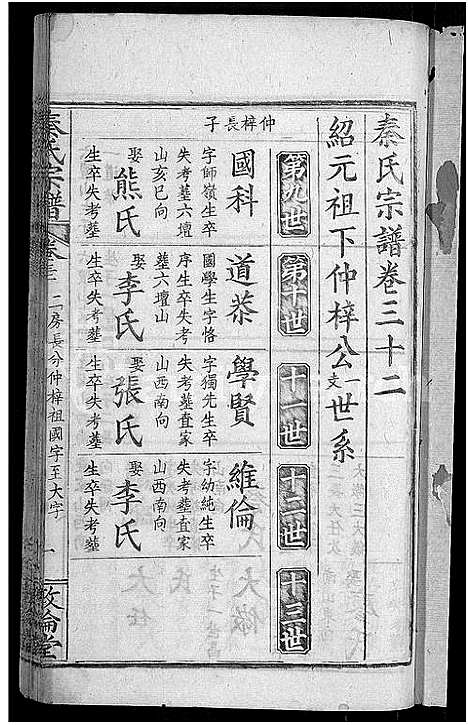 秦氏宗譜卷三十二
紹元祖下仲梓公一支世系
第九世
第十世
十一世
十二世
十三世
仲梓長子
國科
字師嶺生卒
失考塟六壇
山亥巳向
娶熊氏
生卒失考塟
道恭
國學生字恪
序生卒失考
塟六壇山
娶李氏
生卒失考塟
學賢
字獨先生卒
失考塟査家
山西南向
娶張氏
生卒失考塟
維倫
字幼純生卒
失考塟査家
山西南向
娶李氏
生卒失考塟
秦氏宗譜
二房長分仲梓祖國字至大字
一
敦倫堂